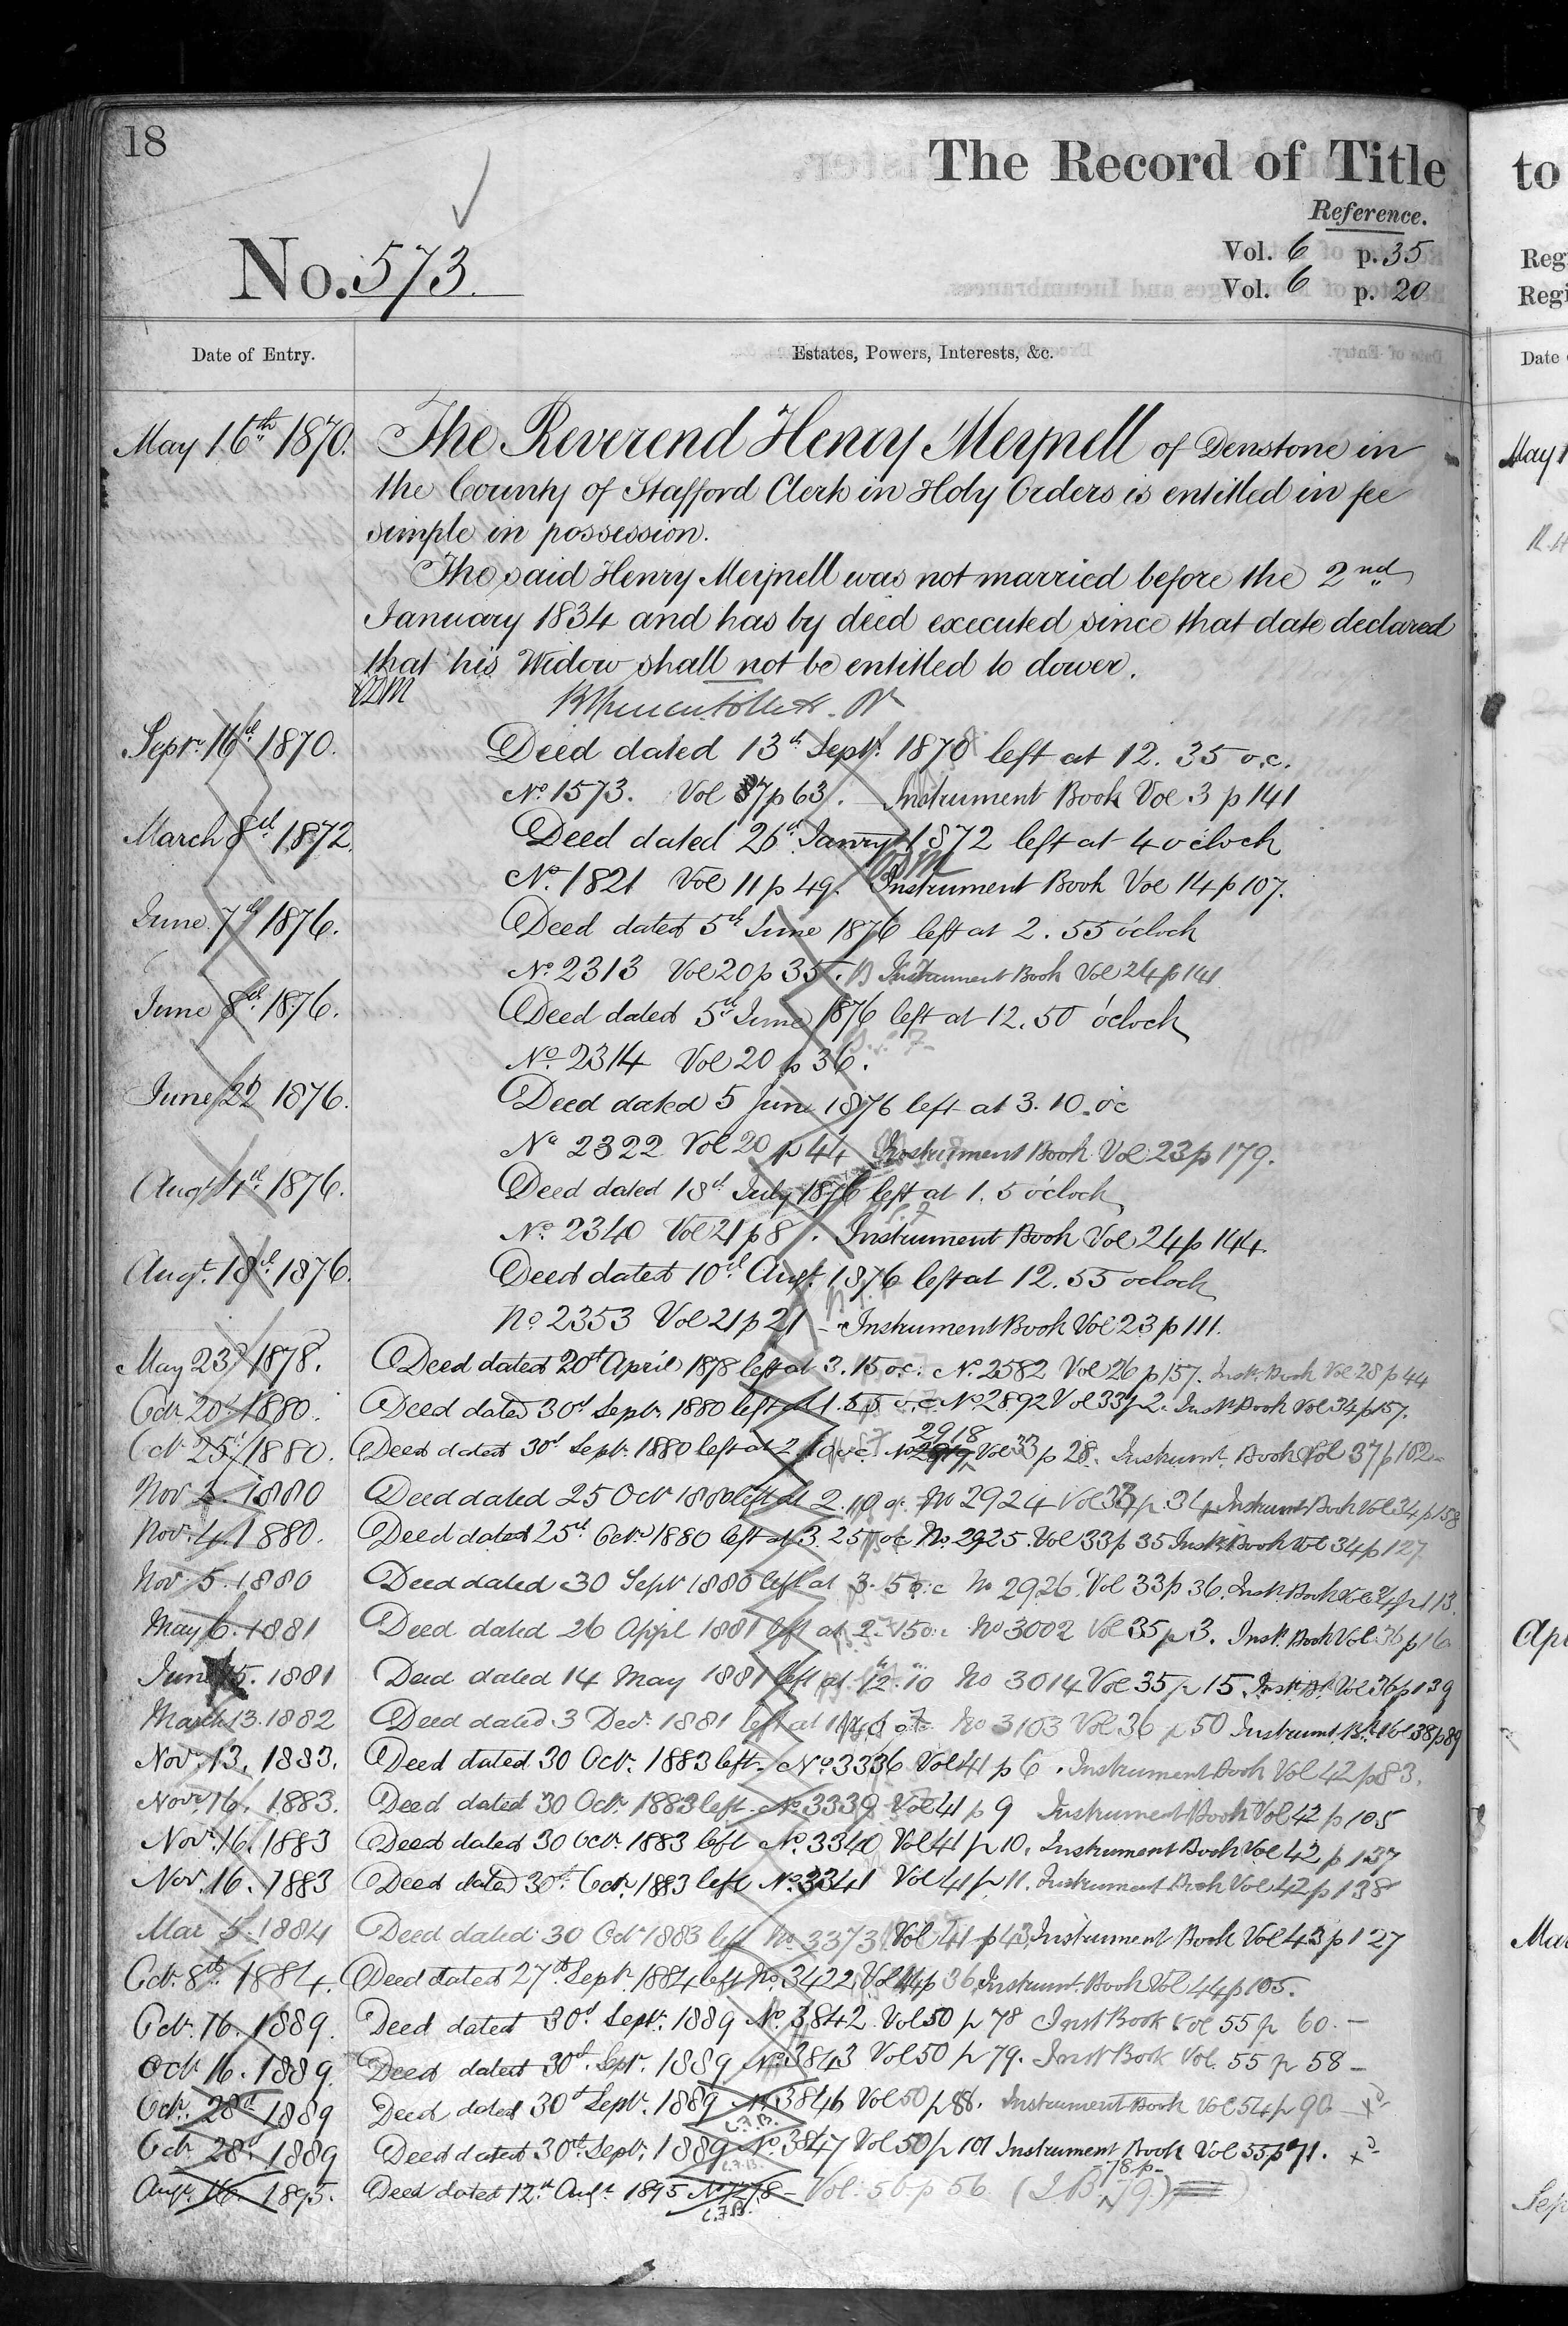 18
The Record of Title
Reference.
No. 573.
Vol. 6 p. 35
Vol. 6 p. 20
Date of Entry.
Estates, Powers, Interests, &c.
May 16th 1870. The Reverend Henry Meynell of Denstone in
the County of Stafford Clerk in Holy Orders is entitled in fee
simple in possession.
The said Henry Meynell was not married before the 2nd
January 1834 and has by deed executed since that date declared
that his Widow shall not be entitled to dower.
Septr. 16th 1870. Deed dated 13th Septr. 1870 left at 12.35 o.c.
No. 1573. Vol 7 p 63. Instrument Book Vol 3 p 141
March 8th 1872. Deed dated 26th Janry 1872 left at 4 o'clock
No. 1821 Vol 11 p 49. Instrument Book Vol 14 p 107.
June 7th 1876. Deed dated 5th June 1876 left at 2.55 o'clock
No. 2313 Vol 20 p 35. Instrument Book Vol 24 p 141
June 8th 1876. Deed dated 5th June 1876 left at 12.50 o'clock
No. 2314 Vol 20 p 36.
June 22 1876. Deed dated 5 June 1876 left at 3.10 oc
No 2322 Vol 20 p 44 Instrument Book Vol 23 p 179.
Augt 4th 1876. Deed dated 18th July 1876 left at 1.5 o'clock
No. 2340 Vol 21 p 8. Instrument Book Vol 24 p 144.
Augt. 18th 1876. Deed dated 10th Augt. 1876 left at 12.55 oclock
No 2353 Vol 21 p 21 - Instrument Book Vol 23 p 111.
May 23d 1878. Deed dated 20th April 1878 left at 3.15 o.c. No. 2582 Vol 26 p 157. Instr. Book Vol 28 p 44
Octr. 20th 1880. Deed dated 30th Septr 1880 left at 1.55 o.c. No. 2892 Vol 33 p 2. Instr. Book Vol 34 p 157.
2918
Oct 25th 1880. Deed dated 30th Septr. 1880 left at 2 o.c. Vol 33 p 28. Instrumt. Book Vol 37 p 102
Nov 1880 Deed dated 25 Oct 1880 left at 2.10 No 2924 Vol 33 p. 34 Instrumt Book Vol 34 p 158
Nov. 4. 1880. Deed dated 25th Octr 1880 left at 3.25 oc No. 2925. Vol 33 p 35 Instr Book Vol 34 p 127
Nov. 5. 1880 Deed dated 30 Sept 1880 left at 3.5 o.c No 2926. Vol 33 p 36. Instr. Book Vol p 113.
May 6. 1881 Deed dated 26 April 1881 left at 2.15 o.c No 3002 Vol 35 p 3. Instr. Book Vol 36 p 16
June 15. 1881 Deed dated 14 May 1881 left at 12.10 No 3014 Vol 35 p 15 Instr. Bk. Vol 36 p 139
March 13. 1882 Deed dated 3 Decr. 1881 left at No 3103 Vol 36 p 50 Instrumt Bk. Vol 38 p 89
Novr. 13. 1883. Deed dated 30 Octr. 1883 left. No. 3336 Vol 41 p 6. Instrument Book Vol 42 p 83.
Novr. 16. 1883. Deed dated 30 Octr. 1883 left. No. 3339 Vol 41 p 9 Instrument Book Vol 42 p 105
Novr. 16. 1883 Deed dated 30 Octr. 1883 left No. 3340 Vol 41 p 10. Instrument Book Vol 42 p 137
Nov. 16. 1883 Deed dated 30th Octr. 1883 left No. 3341 Vol 41 p 11. Instrument Book Vol 42 p 138
Mar 5. 1884 Deed dated 30 Octr 1883 left No. 3373 Vol 41 p 43 Instrument Book Vol 43 p 127
Octr. 8th 1884. Deed dated 27th Septr. 1884 left No. 3422 Vol 44 p 36 Instrumt. Book Vol 44 p 105.
Octr. 16. 1889. Deed dated 30th Septr. 1889 No. 3842. Vol 50 p 78 Inst Book Vol 55 p 60. -
Octr 16. 1889. Deed dated 30th Septr. 1889 No. 3843 Vol 50 p 79. Inst Book Vol. 55 p 58 -
Octr. 28th 1889 Deed dated 30th Septr. 1889 No. 3846 Vol 50 p 88. Instrument Book Vol 54 p 90
C.F.B.
Octr. 28th 1889 Deed dated 30th Septr. 1889 No. 3847 Vol 50 p 101 Instrument Book Vol 55 p 71.
C.F.B.
Augt. 16. 1895. Deed dated 12th Augt 1895 Vol. 56 p 56
C.F.B.
to
Reg
Regi
Date
May 1